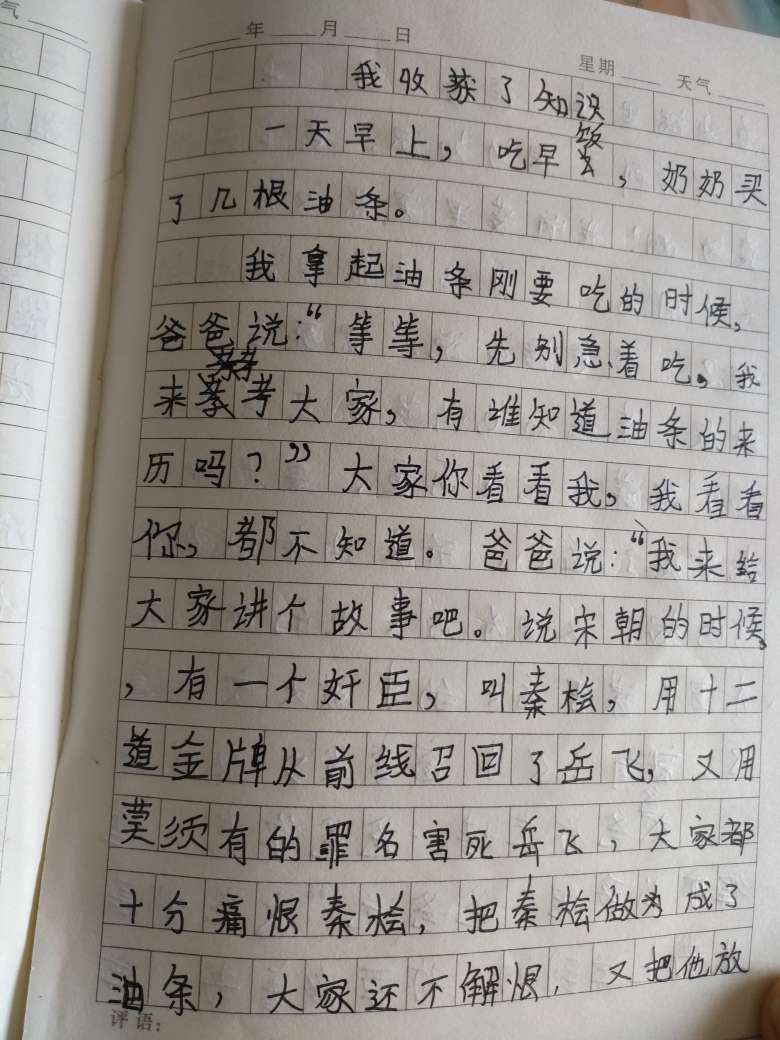 气
年 月 日
星期 天气
我收获了知识
一天早上，吃早饭，奶奶买
了几根油条。
我拿起油条刚要吃的时候，
爸爸说：“等等，先别急着吃。我
来考考大家，有谁知道油条的来
历吗？”大家你看看我，我看看
你，都不知道。爸爸说：“我来给
大家讲个故事吧。说宋朝的时候
，有一个奸臣，叫秦桧，用十二
道金牌从前线召回了岳飞，又用
莫须有的罪名害死岳飞，大家都
十分痛恨秦桧，把秦桧做为成了
油条，大家还不解恨，又把他放
评语：